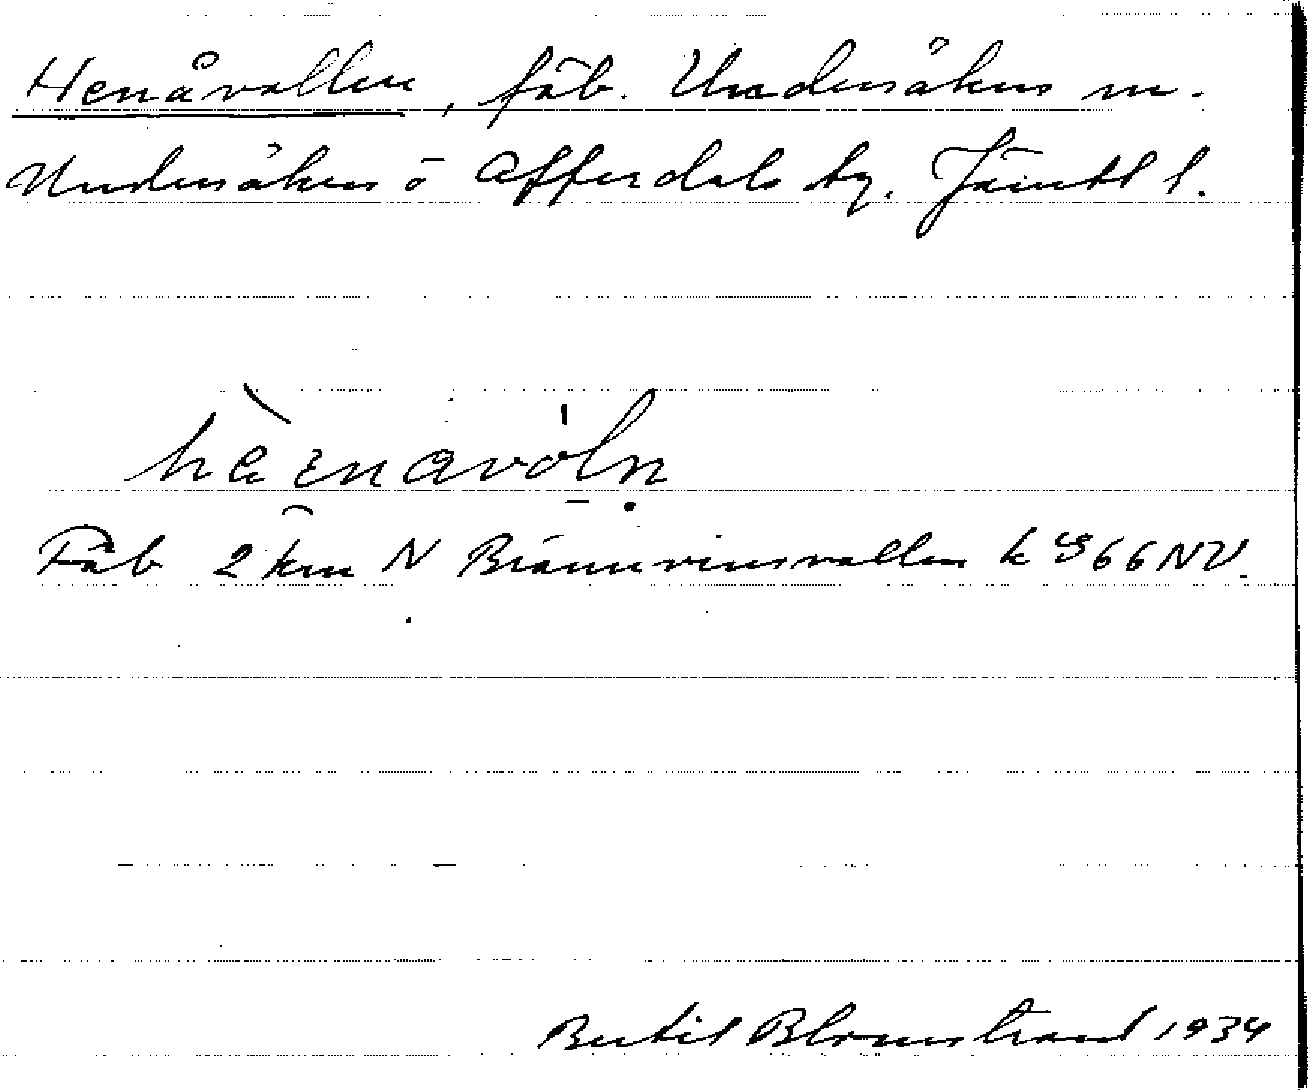 Henåvallen, fäb. Undersåkers sn.
Undersåkers o Offerdals tg. Jämtl l.
hènavö́ln̥
Fäb 2 km N Brännvinsvallen k 66 NV.
Bertil Blomstrand 1934